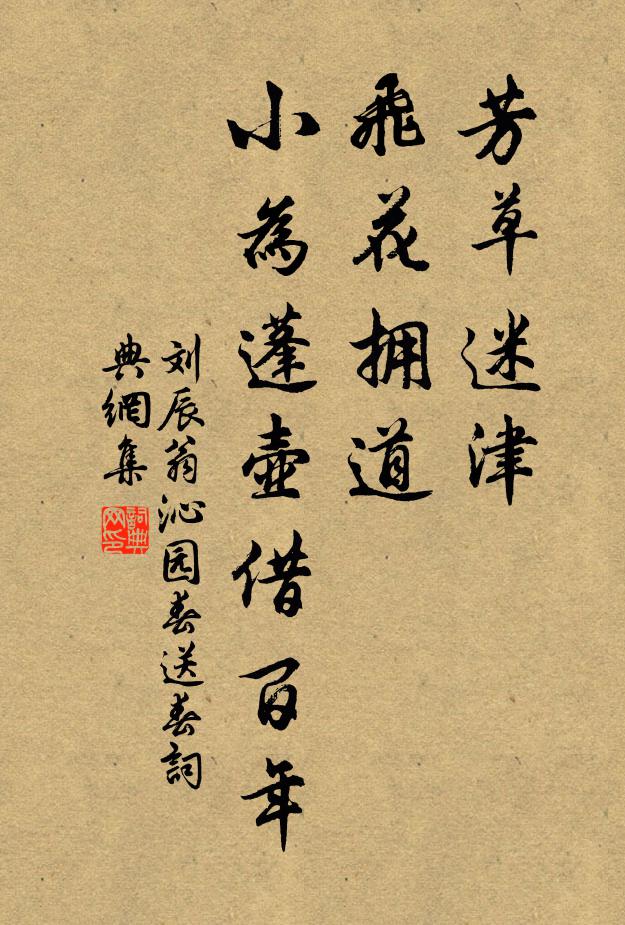 芳草迷津
飛花拥道
小為蓬壺借百年
刘辰翁沁园春送春詞
典網集
詞典网印